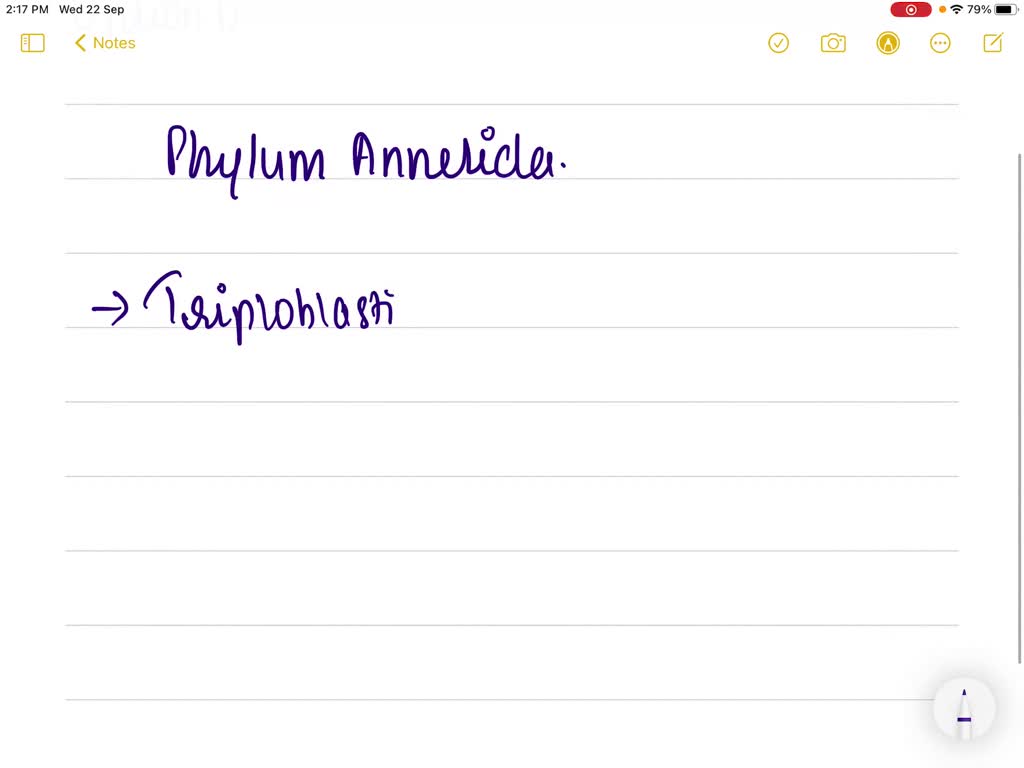 2:17 PM Wed 22 Sep 79%
Notes
Phylum Annelida.
→ Triploblasti